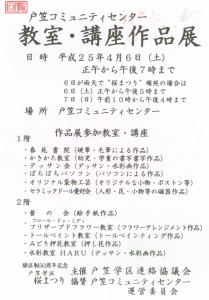 回覧
戸笠コミュニティセンター
教室・講座作品展
日時 平成25年4月6日(土)
正午から午後7時まで
6日が雨天で"桜まつり"順延の場合は
6日(土)正午から午後5時まで
7日(日)午前10時から午後4時まで
場所 戸笠コミュニティセンター
作品展参加教室・講座
1階
・春苑書院(硬筆・毛筆による作品)
・かきかた教室(幼児・学童の書写書等作品)
・デッサン会(デッサン・水彩画作品)
・ぱちぱちパソコン(パソコンによる作品)
・オリジナル築物工芸(オリジナルな小物・ポストン等)
・セラミックドール愛好会(人形・花・小物等の磁器作品)
2階
・蕾の会(絵手紙作品)
・ブリザーブドフラワー教室(フラワーアレンジメント作品)
・トールペイント教室(トールペインティング作品)
・みどり押花教室(押し花作品)
・水彩教室HARU(デッサン・水彩画作品)
緑区制50周年記念
戸笠学区
桜まつり
主催 戸笠学区連絡協議会
協賛 戸笠コミュニティセンター
運営委員会